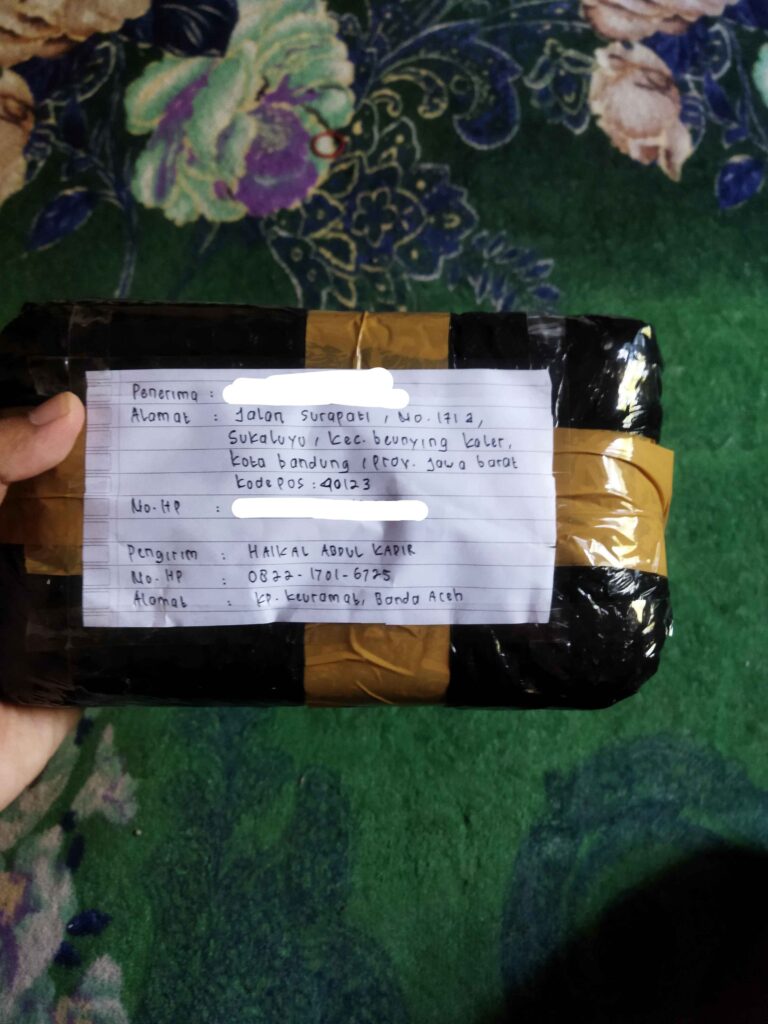 Penerima :
Alamat : Jalan Surapati, No. 171 2,
Sukaluyu, Kec. beunying kaler,
Kota bandung, prov. Jawa barat
Kode pos : 40123
No. HP :
Pengirim : HAIKAL ABDUL KADIR
No. HP : 0822-1701-6725
Alamat : KP. Keuramat, Banda Aceh